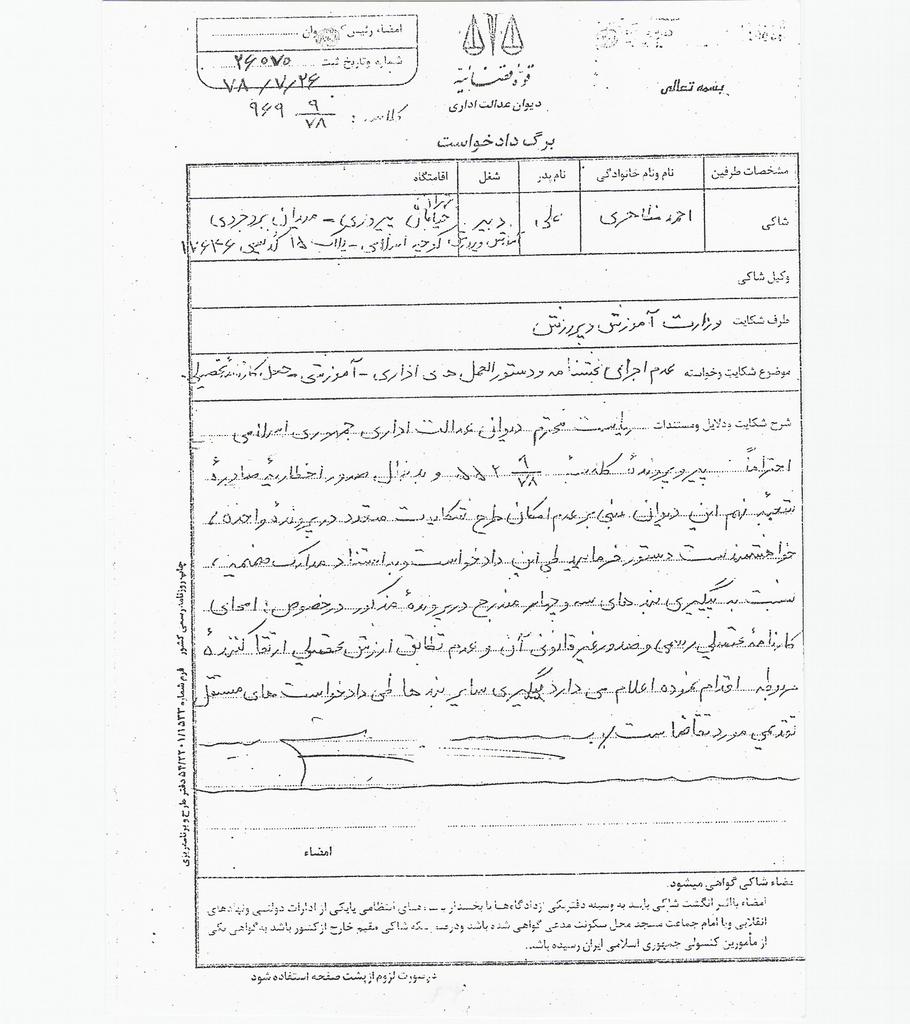 بسمه تعالی
قوه قضائیه
دیوان عدالت اداری
امضاء رئیس
شماره و تاریخ ثبت ۲۶۰۷۵
۷۸/۷/۲۶
کلاسه : ۹/۷۸ ۹۶۹
برگ دادخواست
مشخصات طرفین نام و نام خانوادگی نام پدر شغل اقامتگاه
شاکی احمد علی دبیر آموزش و پرورش تهران
خیابان پیروزی - میدان بروجردی
کوچه اسلامی - پلاک ۱۵ کد پستی ۱۷۶۳۶
وکیل شاکی
طرف شکایت وزارت آموزش و پرورش
موضوع شکایت و خواسته عدم اجرای بخشنامه و دستورالعمل های اداری - آموزشی - جعل کارنامه تحصیلی
شرح شکایت و دلایل و مستندات ریاست محترم دیوان عدالت اداری جمهوری اسلامی
احتراماً پیرو پروندهٔ کلاسهٔ ۹/۷۸ ۵۵۲ و بدنبال صدور اخطاریهٔ صادرهٔ
شعبهٔ نهم این دیوان مبنی بر عدم امکان طرح شکایت متعدد در پروندهٔ واحده ،
خواهشمند است دستور فرمایید طی این دادخواست و به استناد مدارک منضمین ،
نسبت به پیگیری بند های سه و چهار مندرج در پروندهٔ مذکور در خصوص : امحای
کارنامهٔ تحصیلی رسمی و صدور غیر قانونی آن و عدم تطابق ارزش تحصیلی ارتقا کنندهٔ
مربوطه اقدام نموده اعلام می دارد پیگیری سایر بند ها طی دادخواست های مستقل
تقدیمی مورد تقاضا است
امضاء
امضاء شاکی گواهی میشود.
امضاء یا اثر انگشت شاکی باید به وسیله دفتر یکی از دادگاهها یا بخشدار یا انتظامی یا یکی از ادارات دولتی و نهادهای
انقلابی و یا امام جماعت مسجد محل سکونت مدعی گواهی شده باشد و درصورتیکه شاکی مقیم خارج از کشور باشد به گواهی یکی
از مأمورین کنسولی جمهوری اسلامی ایران رسیده باشد.
در صورت لزوم از پشت صفحه استفاده شود
چاپ روزنامه رسمی کشور فرم شماره ۵۴/۲۲۰۱/۱۵۳۳ دفتر طرح و برنامه ریزی